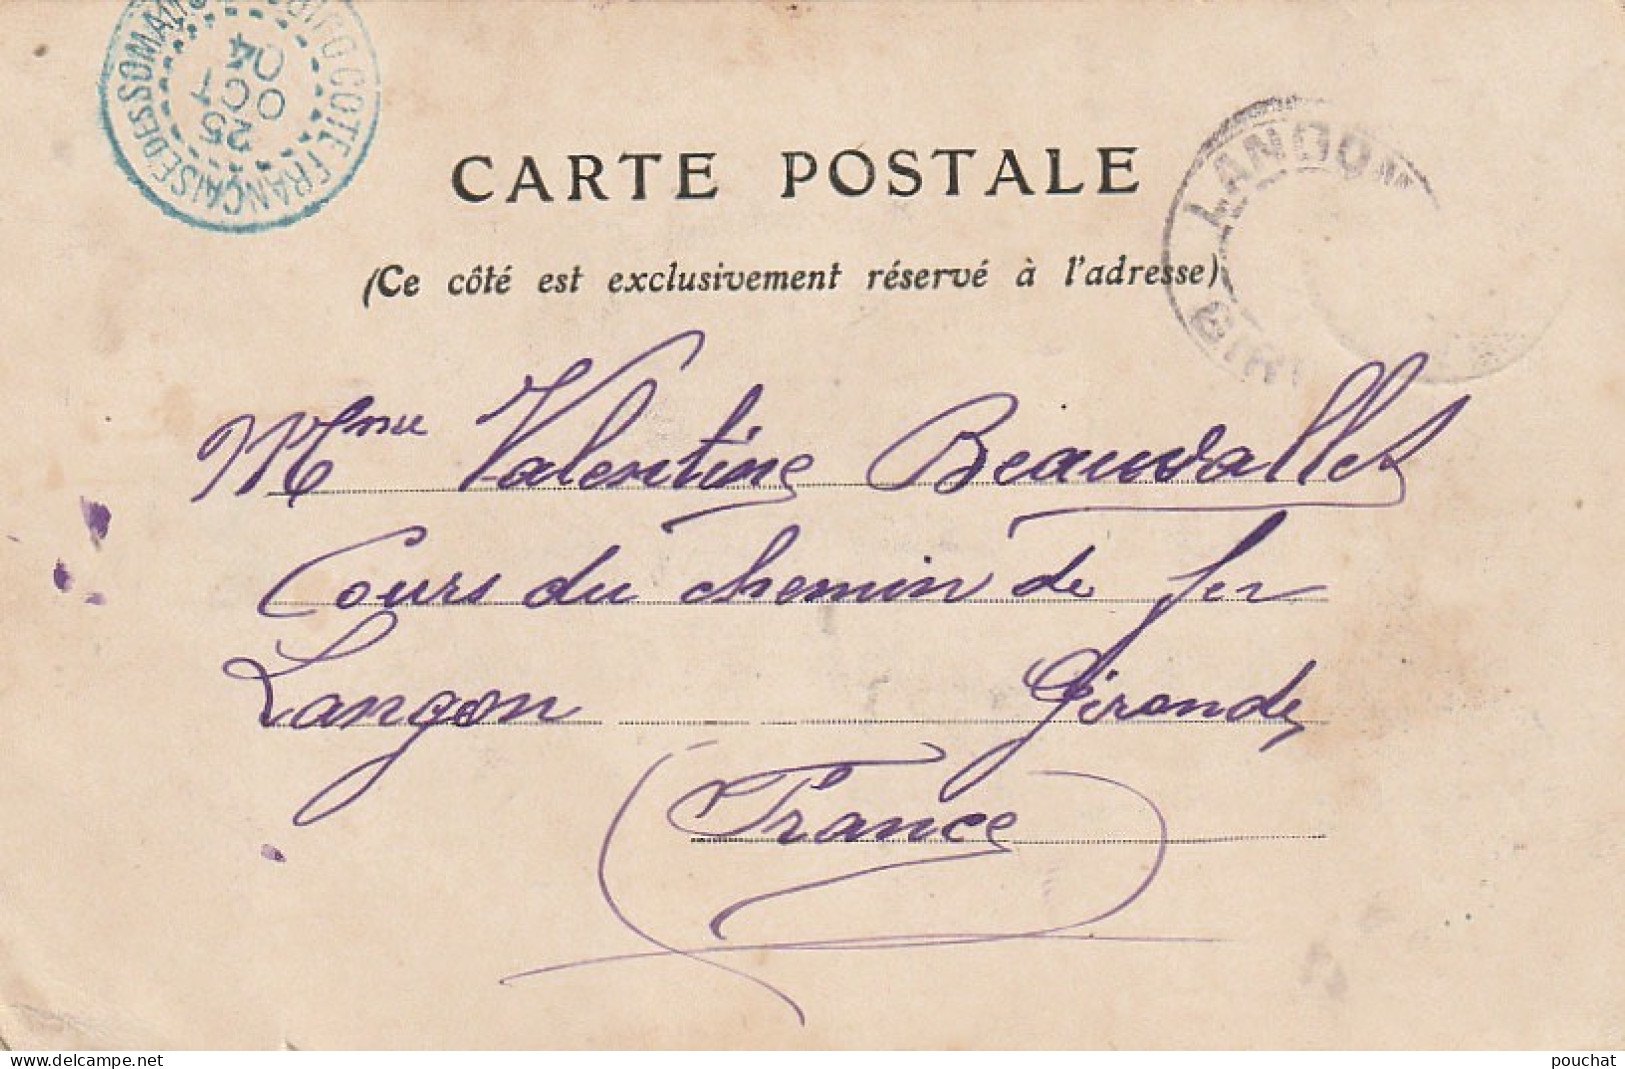 COTE FRANÇAISE DES SOMALIS
25
OCT
04
CARTE POSTALE
(Ce côté est exclusivement réservé à l'adresse)
Mme Valentine Beauvallet
Cours du chemin de fer
Langon Gironde
(France)
delcampe.net
pouchat